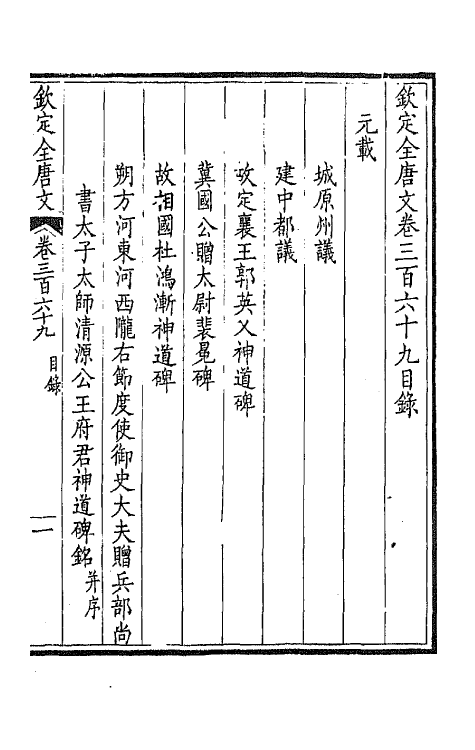 欽定全唐文卷三百六十九目錄
元載
城原州議
建中都議
故定襄王郭英乂神道碑
冀國公贈太尉裴冕碑
故相國杜鴻漸神道碑
朔方河東河西隴右節度使御史大夫贈兵部尚
書太子太師清源公王府君神道碑銘并序
欽定全唐文 卷三百六十九 目錄 一